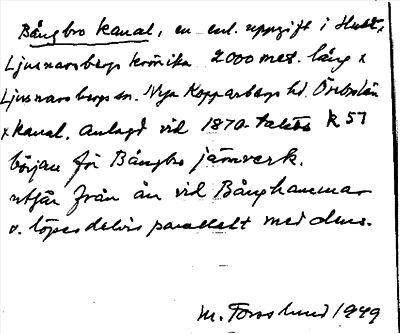 Bångbro kanal, en enl. uppgift i Hult,
Ljusnarsbergs krönika 2000 met. lång x
Ljusnarsbergs sn. Nya Kopparbergs hd. Örebro län
x kanal. Anlagd vid 1870-talets K 57
början för Bångbro järnverk.
utgår från ån vid Bånghammar
o. löper delvis parallelt med dens.
M. Forslund 1949